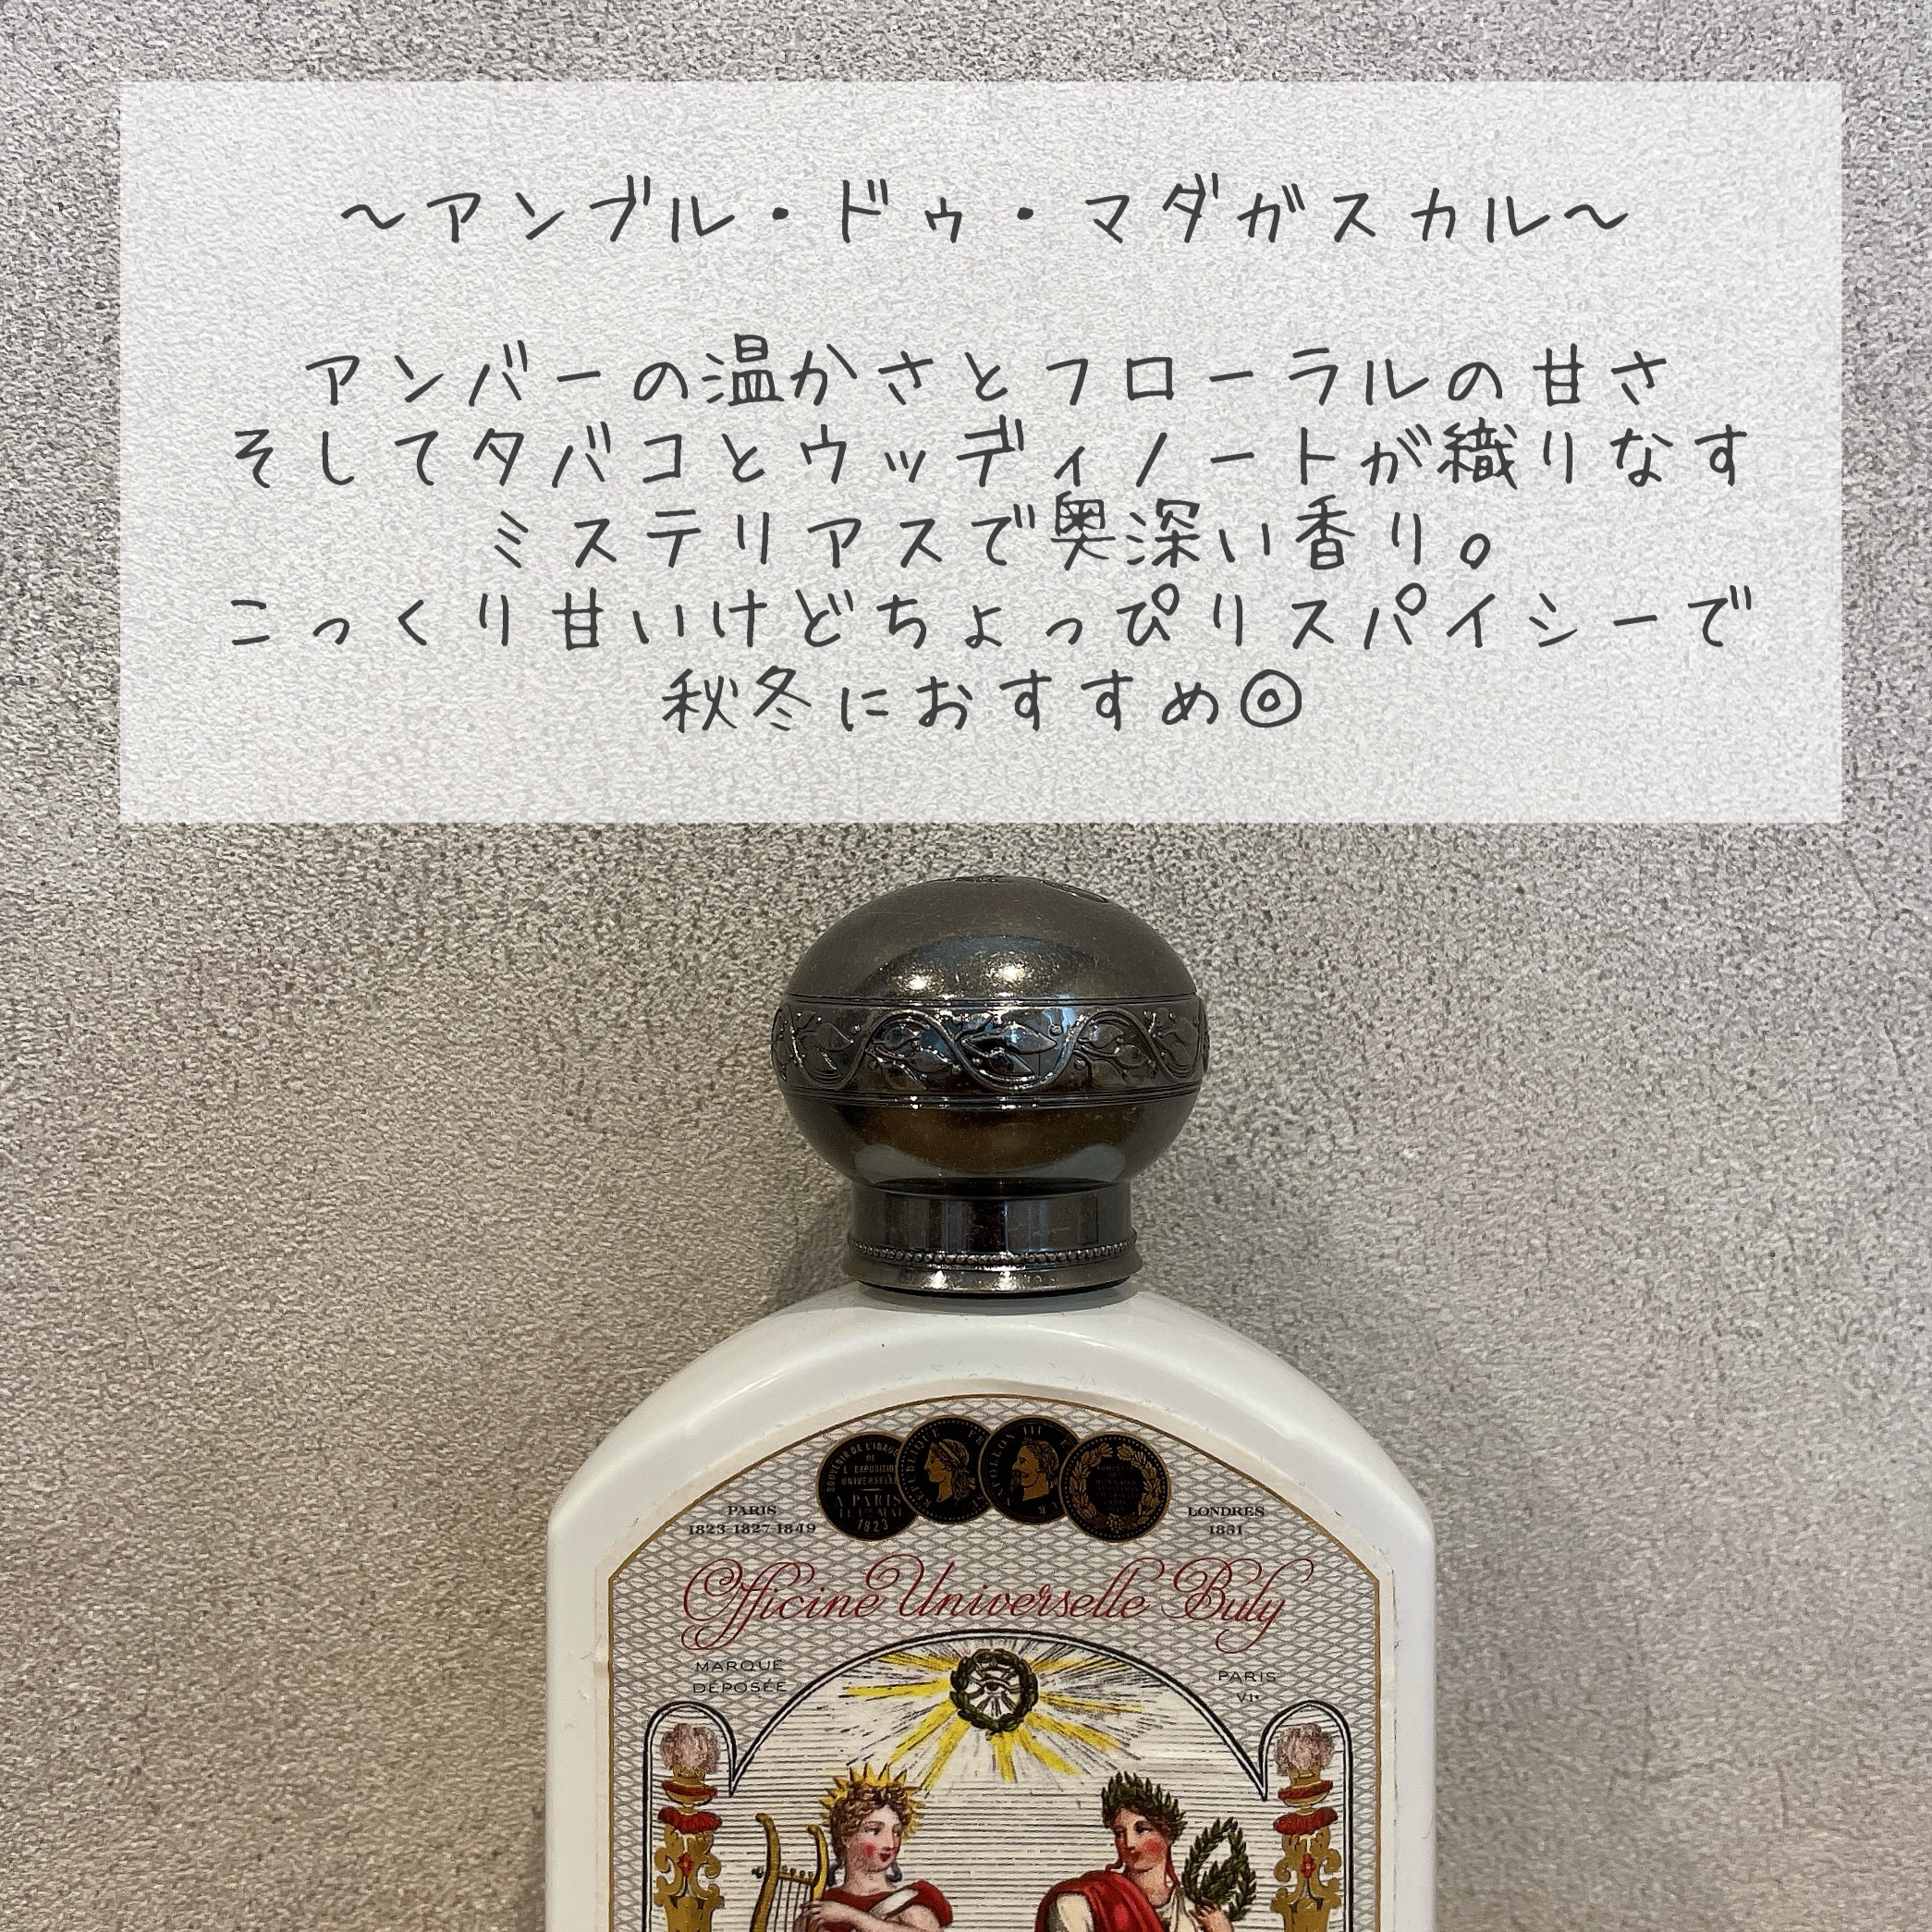 〜アンブル・ドゥ・マダガスカル〜
アンバーの温かさとフローラルの甘さ
そしてタバコとウッディノートが織りなす
ミステリアスで奥深い香り。
こっくり甘いけどちょっぴりスパイシーで
秋冬におすすめ◎
SOUVENIR DE L'INAUG
DE
L'EXPOSITION
UNIVERSELLE
A PARIS
1823
NAPOLEON III
PARIS
1823-1827-1849
LONDRES
1851
Officine Universelle Buly
MARQUE
DÉPOSÉE
PARIS
VIe